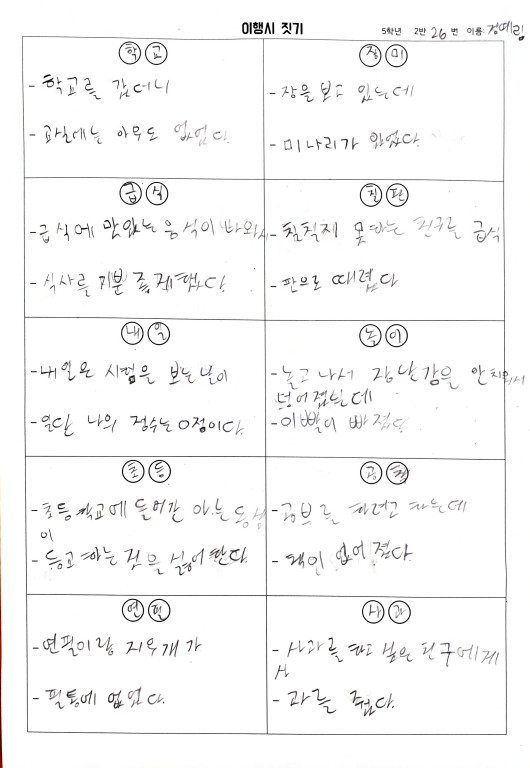 이행시 짓기
5학년 2반 26번 이름: 정예림
학교
- 학교를 갔더니
- 교실에는 아무도 없었다.
장미
- 장을 보고 있는데
- 미나리가 있었다.
급식
- 급식에 맛있는 음식이 나와서
- 식사를 기분 좋게했다.
칠판
- 칠칠치 못하는 친구를 급식
- 판으로 때렸다
내일
- 내일은 시험을 보는날이
- 일단 나의 점수는 0점이다.
놀이
- 놀고 나서 장난감을 안치워서
넘어졌는데
- 이빨이 빠졌다
초등
- 초등학교에 들어간 아는 동생
이
- 등교 하는 것을 싫어한다.
공책
- 공부를 하려고 하는데
- 책이 없어졌다.
연필
- 연필이랑 지우개가
- 필통에 없었다.
사과
- 사과를 하고 싶은 친구에게
- 과를 줬다.